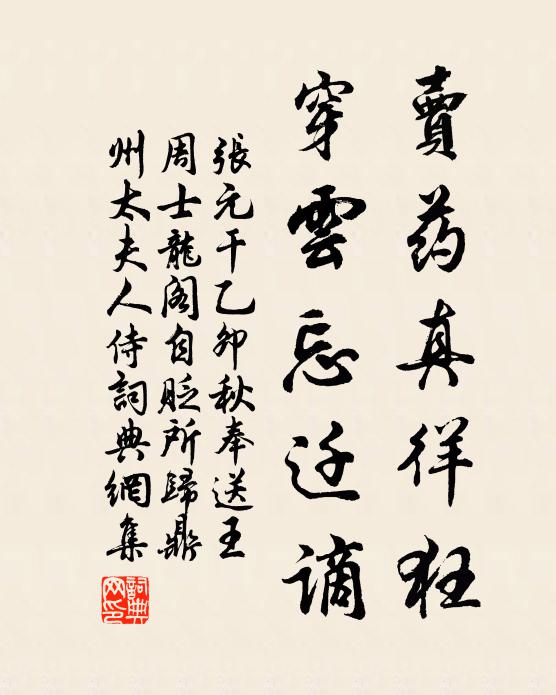 賣药真徉狂
穿雲忘迁謫
張元干乙卯秋奉送王
周士龍阁自貶所歸鼎
州太夫人侍詞典網集
詞典网印